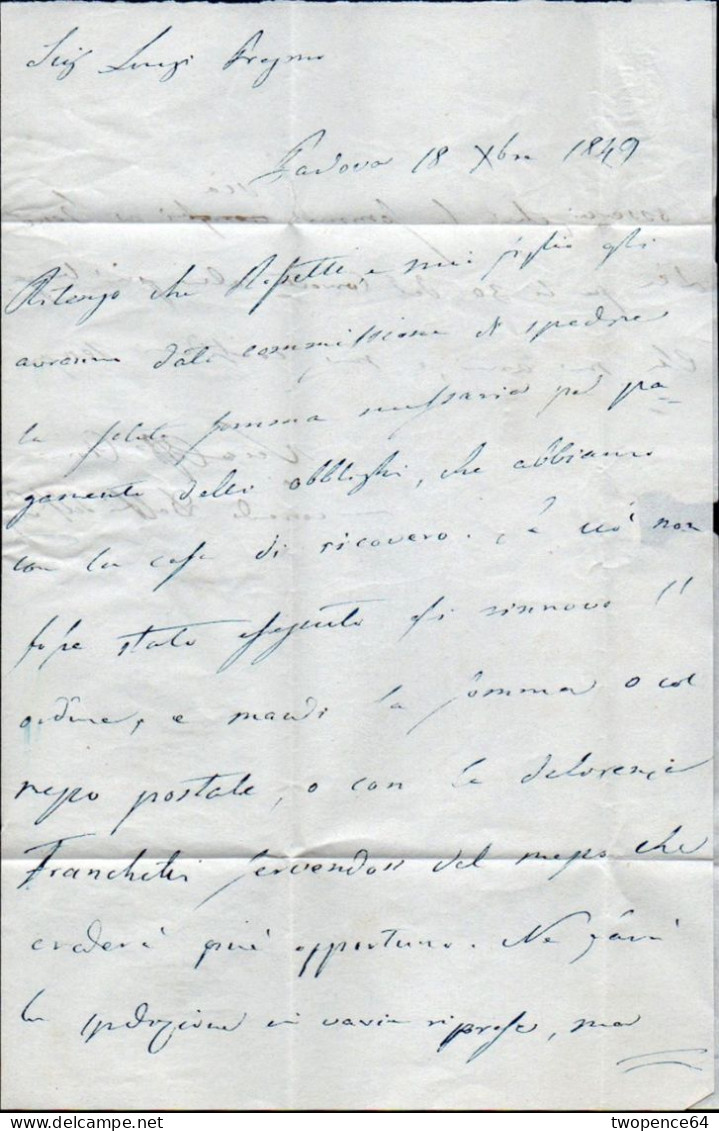 Sig Luigi
Padova 18 Xbre 1849
Ritengo che Rossetti e miei figlio gli
avranno dato commissione di spedire
la solita somma necessaria pel pa=
gamento delli obblighi, che abbiamo
con la casa di ricovero. Se ciò non
fosse stato eseguito gli rinnovo l'
ordine, e mandi la somma o col
mezzo postale, o con la
Franchetti servendosi del mezzo che
crederà più opportuno. Ne farà
la spedizione in varie riprese, ma
twopence64